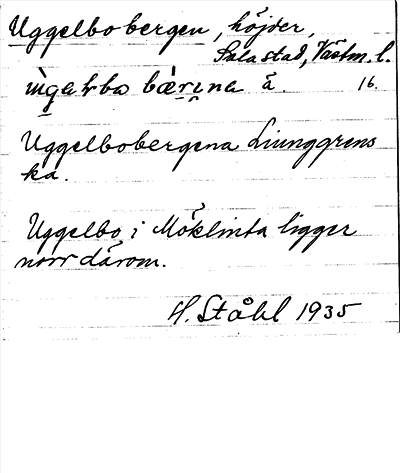 Uggelbobergen, höjder,
Sala stad, Västm. l.
bärina å. 16.
Uggelbobergena Ljunggrens
ka.
Uggelbo i Möklinta ligger
norr därom.
H. Ståhl 1935